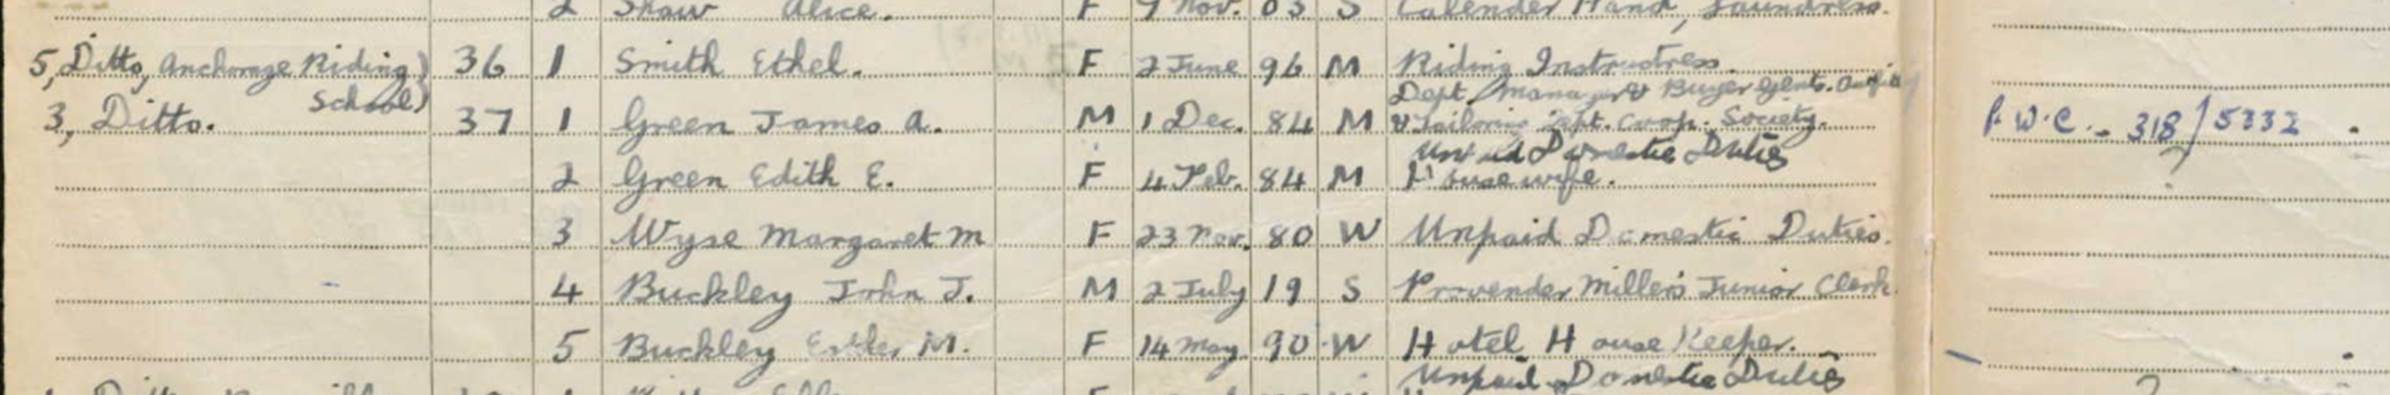 2 Shaw Alice. F 9 Nov. 03 S Calender Hand, Laundress.
5, Ditto, Anchorage Riding School) 36 1 Smith Ethel. F 2 June 96 M Riding Instructress.
Dept. Manager & Buyer Gents.
3, Ditto. 37 1 Green James A. M 1 Dec. 84 M & Tailoring Dept. Coop. Society. P.W.C. - 318/5332
Unpaid Domestic Duties
2 Green Edith E. F 4 Feb. 84 M Housewife.
3 Wyse Margaret M F 23 Nov. 80 W Unpaid Domestic Duties.
4 Buckley John J. M 2 July 19 S Provender Millers Junior Clerk
5 Buckley Esther M. F 14 May 90 W Hotel House Keeper.
Unpaid Domestic Duties